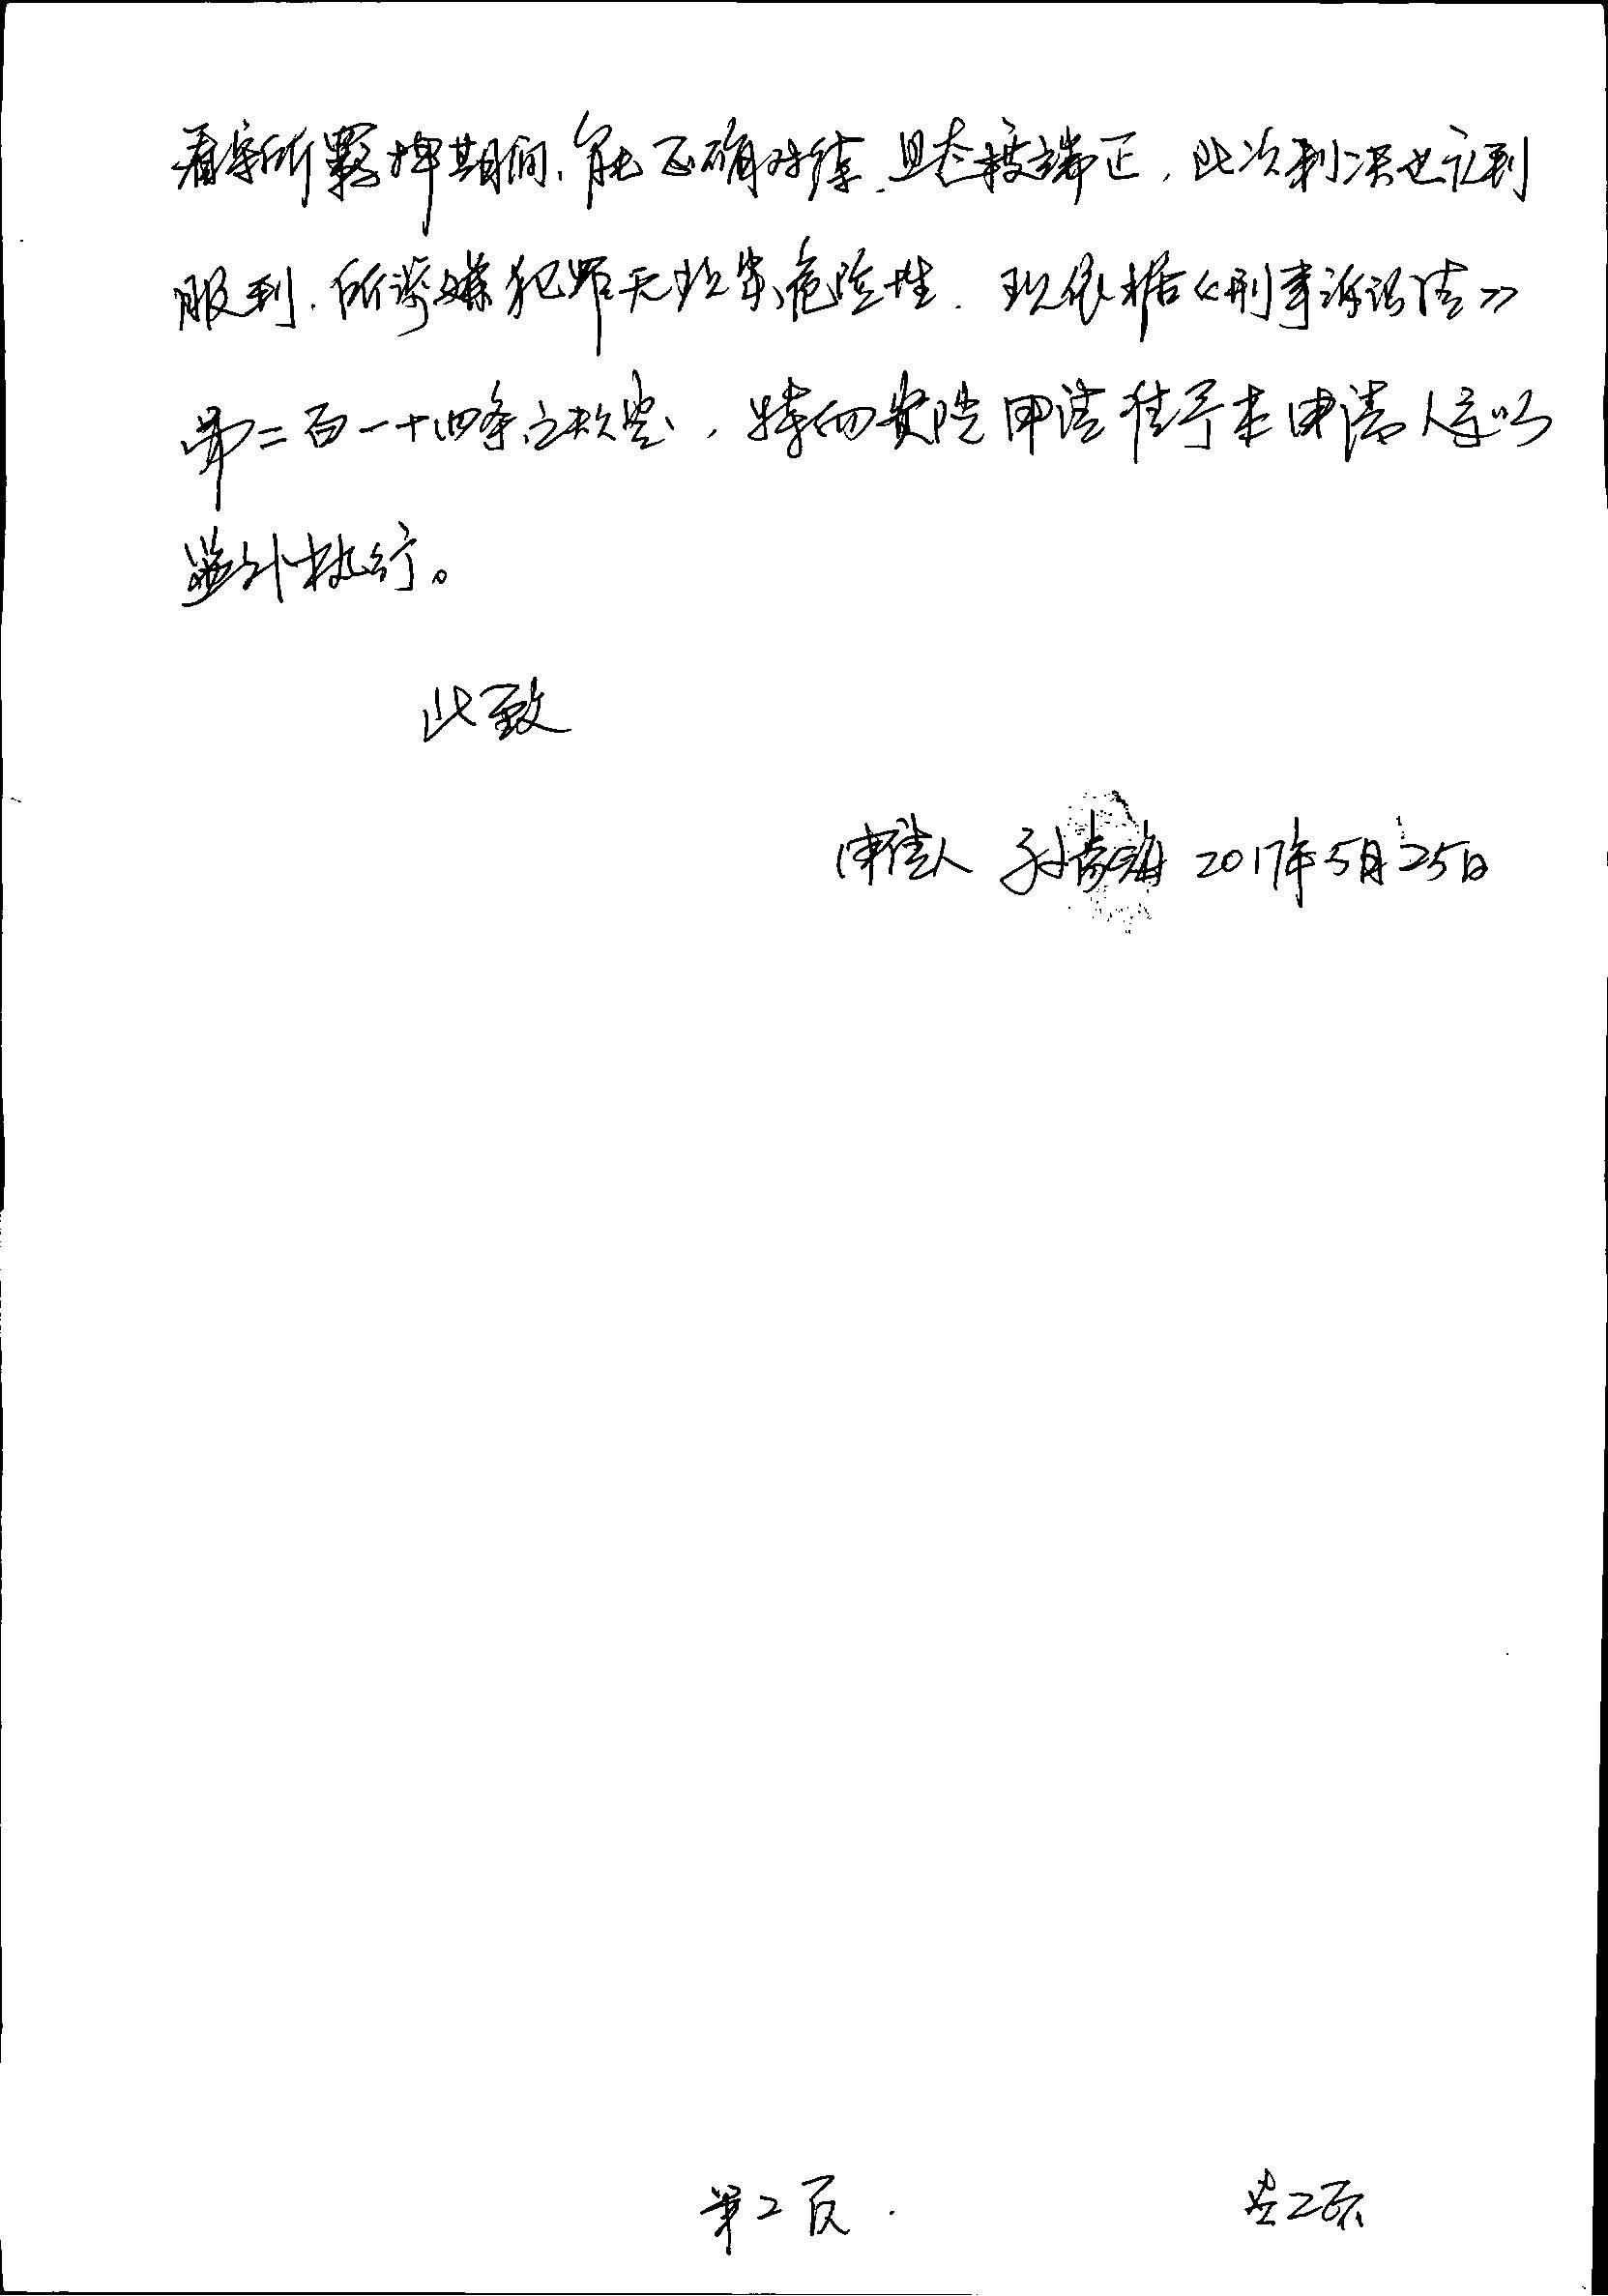 看守所羁押期间,能正确对待,且态度端正,此次判决也认刑
服刑.所涉嫌犯罪无现实危险性.现依据《刑事诉讼法》
第二百一十四条之规定,特向贵院申请准予本申请人予以
监外执行。
此致
申请人 孙 海 2017年5月25日
第2页. 共2页